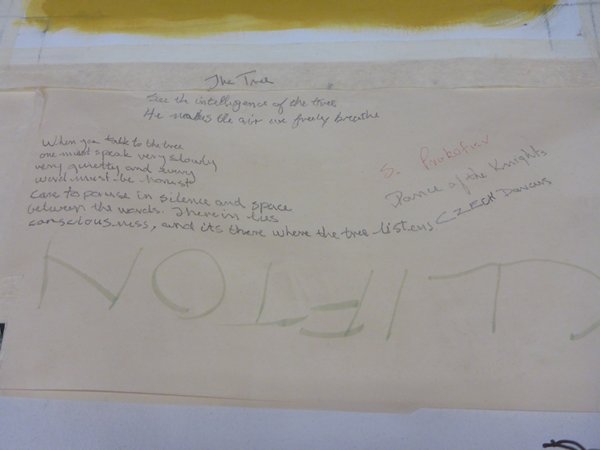 The Tree
See the intelligence of the tree
He makes the air we freely breathe
When you talk to the tree
one must speak very slowly
very quietly and every
word must be honest
Care to pause in silence and space
between the words. There in lies
consciousness, and its there where the tree listens
S. Prokofiev
Dance of the Knights
CZECH Dances
CLIFTON